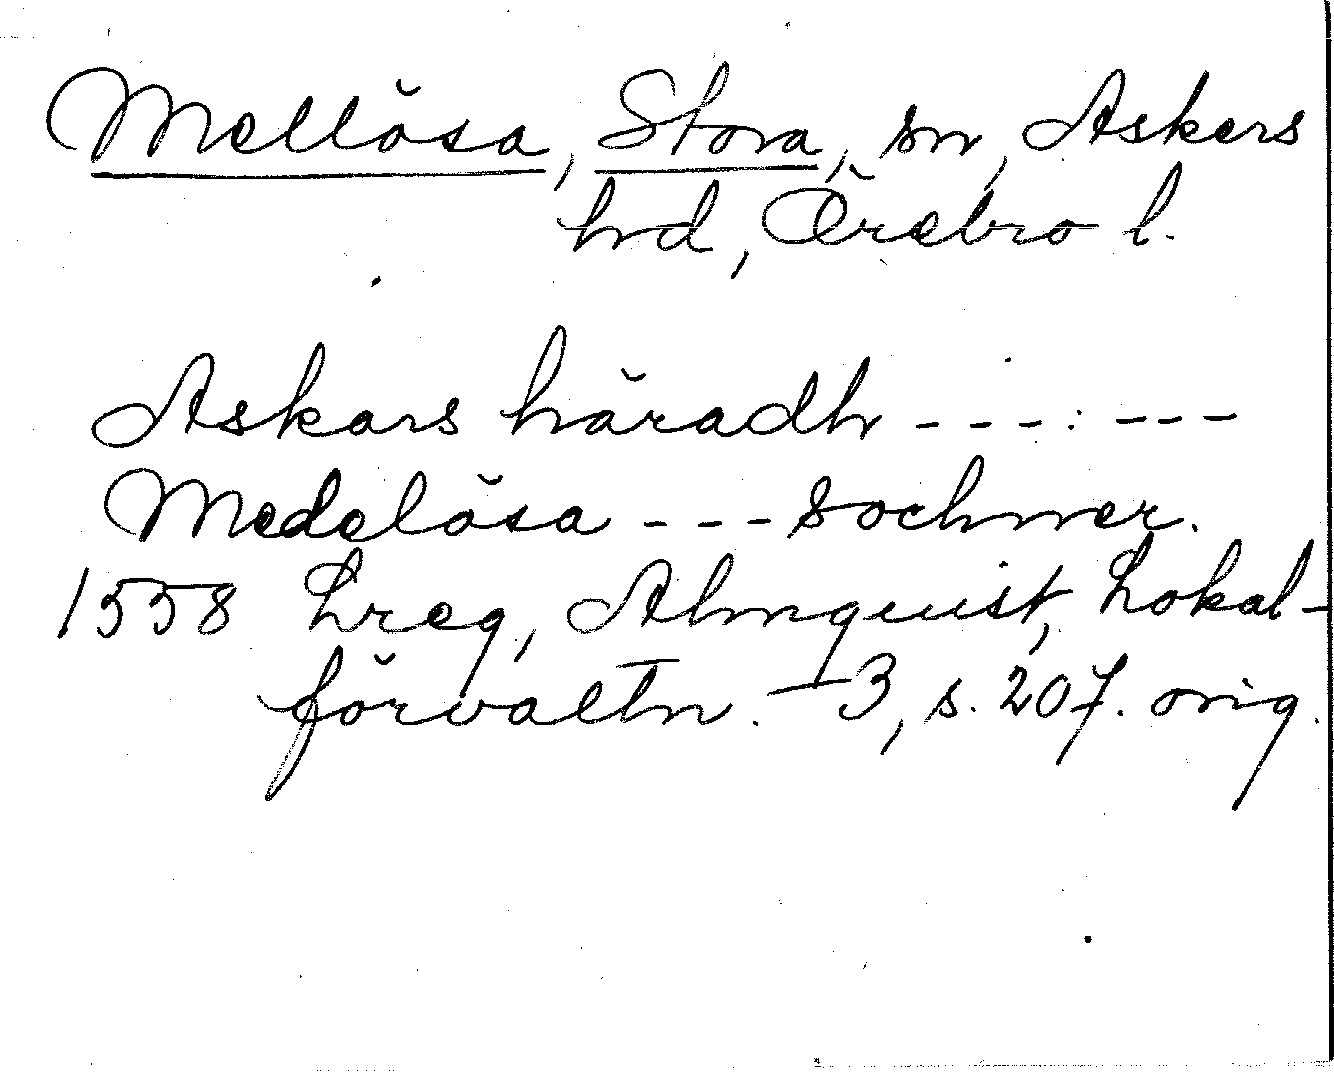 Mellösa, Stora, sn, Askers
hd, Örebro l.
Askars häradh - - - : - - -
Medelösa - - - sochner.
1558 Lreg, Almquist, Lokal-
förvaltn. 3, s. 207. orig.